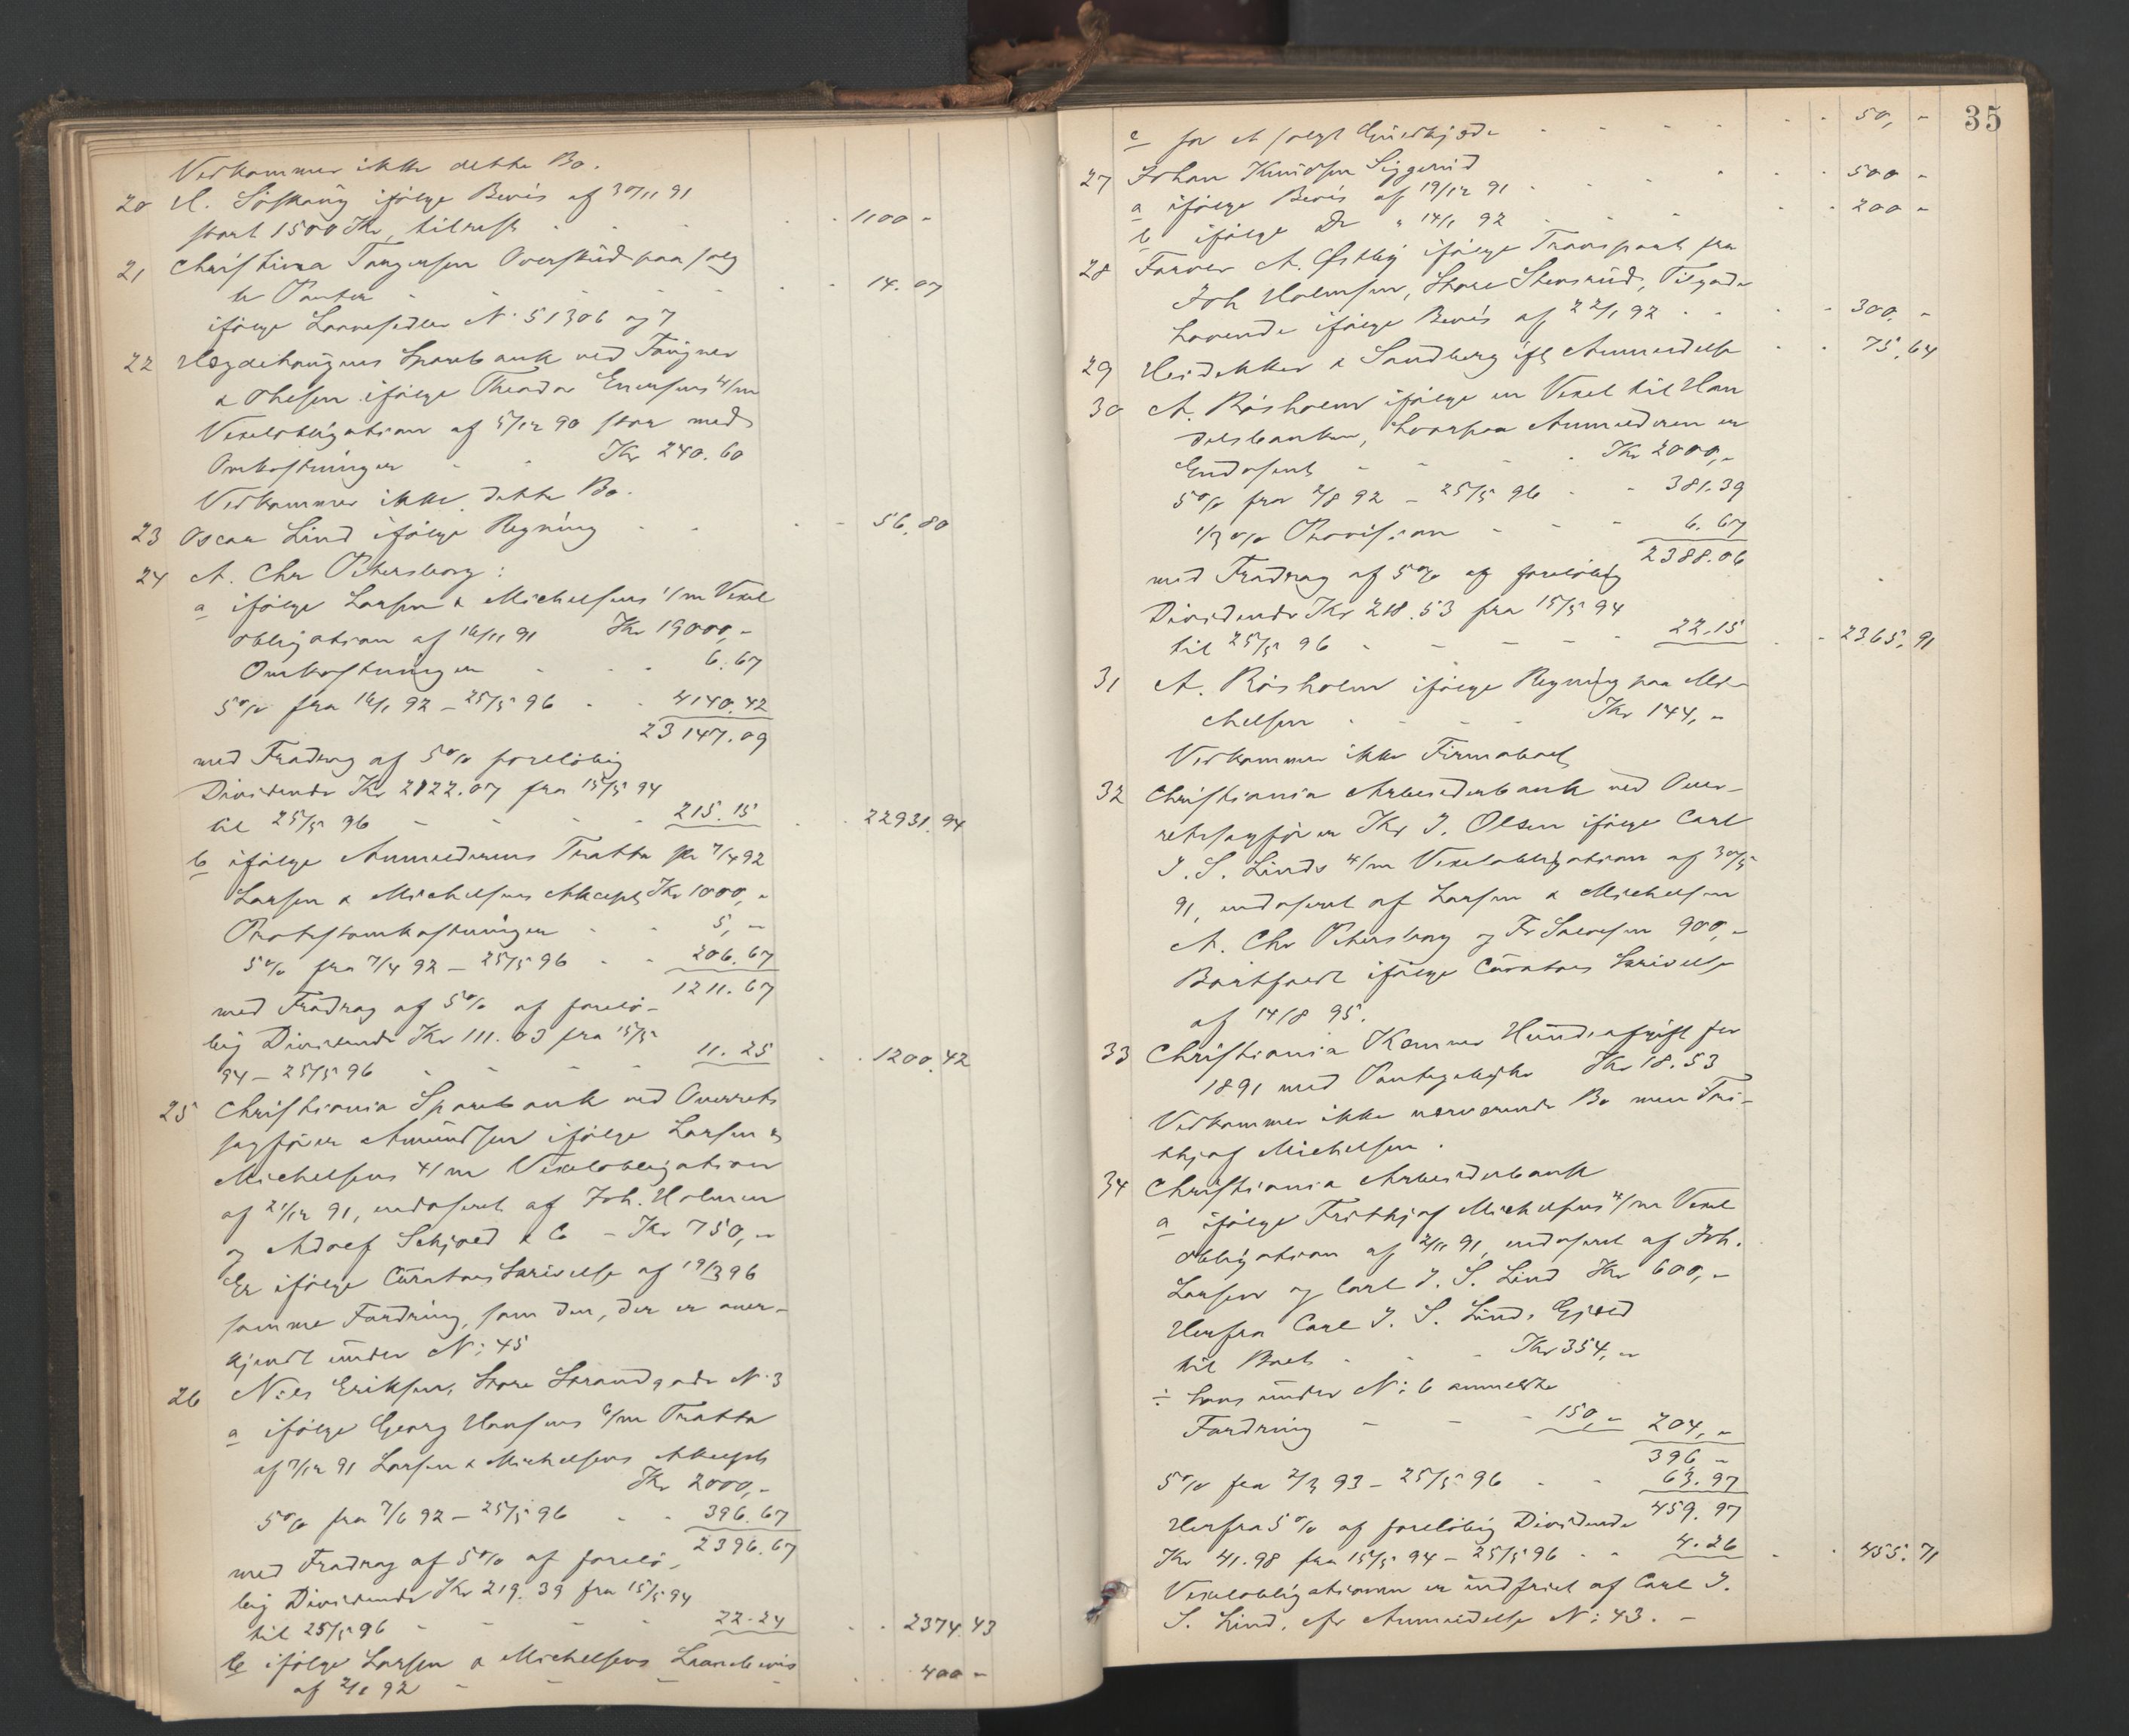 Vedkommer ikke dette Bo.
20 A. Löskaug ifølge Bevis af 30/11 91
stort 1500 Kr, tilrest - - - 1100 -
21 Christiana Torgersen Overskud paa solg
te Panter - - - - - 14.07
ifølge Laanesedler N. 51306 og 7
22 Hægdehaugens Sparebank ved Taugner
& Olesen ifølge Theodor Enersens 4/m
Vexelobligation af 5/12 90 stor med
Omkostninger - - Kr 240.60
Vedkommer ikke dette Bo.
23 Oscar Lind ifølge Regning - - - 56.80
24 A. Chr Petersborg:
a ifølge Larsen & Michelsens 1/m Vexel
obligation af 16/11 91 Kr 19000,-
Omkostninger - - - 6.67
5% fra 16/1 92 - 25/5 96 - - 4140.42
23147.09
med Fradrag af 5% foreløbig
Dividende Kr 2122.07 fra 15/5 94
til 25/5 96 - - - - 215.15 - - 22931.94
b ifølge Anmelderens Tratta pr 7/4 92
Larsen & Michelsens Akcept Kr 1000,-
Protestomkostninger - - 5,-
5% fra 7/4 92 - 25/5 96 - - 206.67
1211.67
med Fradrag af 5% af forelø-
big Dividende Kr 111.03 fra 15/5
94 - 25/5 96 - - - - 11.25 - - 1200.42
25 Christiania Sparebank ved Overrets
sagfører Amundsen ifølge Larsen &
Michelsens 4/m Vexelobligation
af 21/12 91, endosseret af Joh. Holmsen
og Adolf Schjoed & Co - Kr 750,-
Er ifølge Curators Skrivelse af 19/3 96
samme Fordring, som den, der er aner-
kjendt under N: 45
26 Niels Eriksen, Store Strandgade N. 3
a ifølge Georg Hansens 6/m Tratta
af 7/12 91 Larsen & Michelsens Akcept
Kr 2000,-
5% fra 7/6 92 - 25/5 96 - - 396.67
2396.67
med Fradrag af 5% af forelø-
big Dividende Kr 219.39 fra 15/5 94
til 25/5 96 - - - - 22.24 - - 2374.43
b ifølge Larsen & Michelsens Laanebevis
af 2/1 92 - - - - - - 400 -
35
c for et solgt - - - - - - 50,-
27 Johan Knudsen Siggerud
a ifølge Bevis af 19/12 91 - - - - - 500 -
b ifølge Do " 14/1 92 - - - - - 200 -
28 Farver A. Østby ifølge Transport fra
Joh Holmsen, Store Stensrud, Tilgode
havende ifølge Bevis af 22/1 92 - - - - 300 -
29 Heidekker & Sandberg ifl Anmeldelse - - 75.64
30 A. Risholm ifølge en Vexel til Han
delsbanken, hvorpaa Anmelderen er
Endosent - - - - Kr 2000,-
5% fra 2/8 92 - 25/5 96 - - 381.39
1/3 % Provision - - - 6.67
2388.06
med Fradrag af 5% af foreløbig
Dividende Kr 218.53 fra 15/5 94
til 25/5 96 - - - - 22.15 - - 2365.91
31 A. Risholm ifølge Regning paa Mi-
chelsen - - - - Kr 144,-
Vedkommer ikke Firmaboet
32 Christiania Arbeiderbank ved Over-
retssagfører Kr J. Olsen ifølge Carl
J. S. Linds 4/m Vexelobligation af 30/5
91, endosseret af Larsen & Michelsen
A. Chr Petersborg og Fr 900,-
Bortfaldt ifølge Curators Skrivelse
af 14/8 95.
33 Christiania Kemner Hundeafgift for
1891 med Pantegebyhr Kr 18.53
Vedkommer ikke nærværende Bo men Fri-
thjof Michelsen.
34 Christiania Arbeiderbank
a ifølge Frithjof Michelsens 4/m Vexel
obligation af 2/11 91, endosseret af Joh.
Larsen og Carl J. S. Lind Kr 600,-
Herfra Carl J. S. Linds Gjæld
til Boet - - - Kr 354,-
÷ hans under N: 6 anmeldte
Fordring - - - 150,- 204,-
396 -
5% fra 2/3 93 - 25/5 96 - - 63.97
459.97
Herfra 5% af foreløbig Dividende
Kr 41.98 fra 15/5 94 - 25/5 96 - - 4.26 - - 455.71
Vexelobligationen er indfriet af Carl J.
S. Lind, cfr Anmeldelse N: 43. -